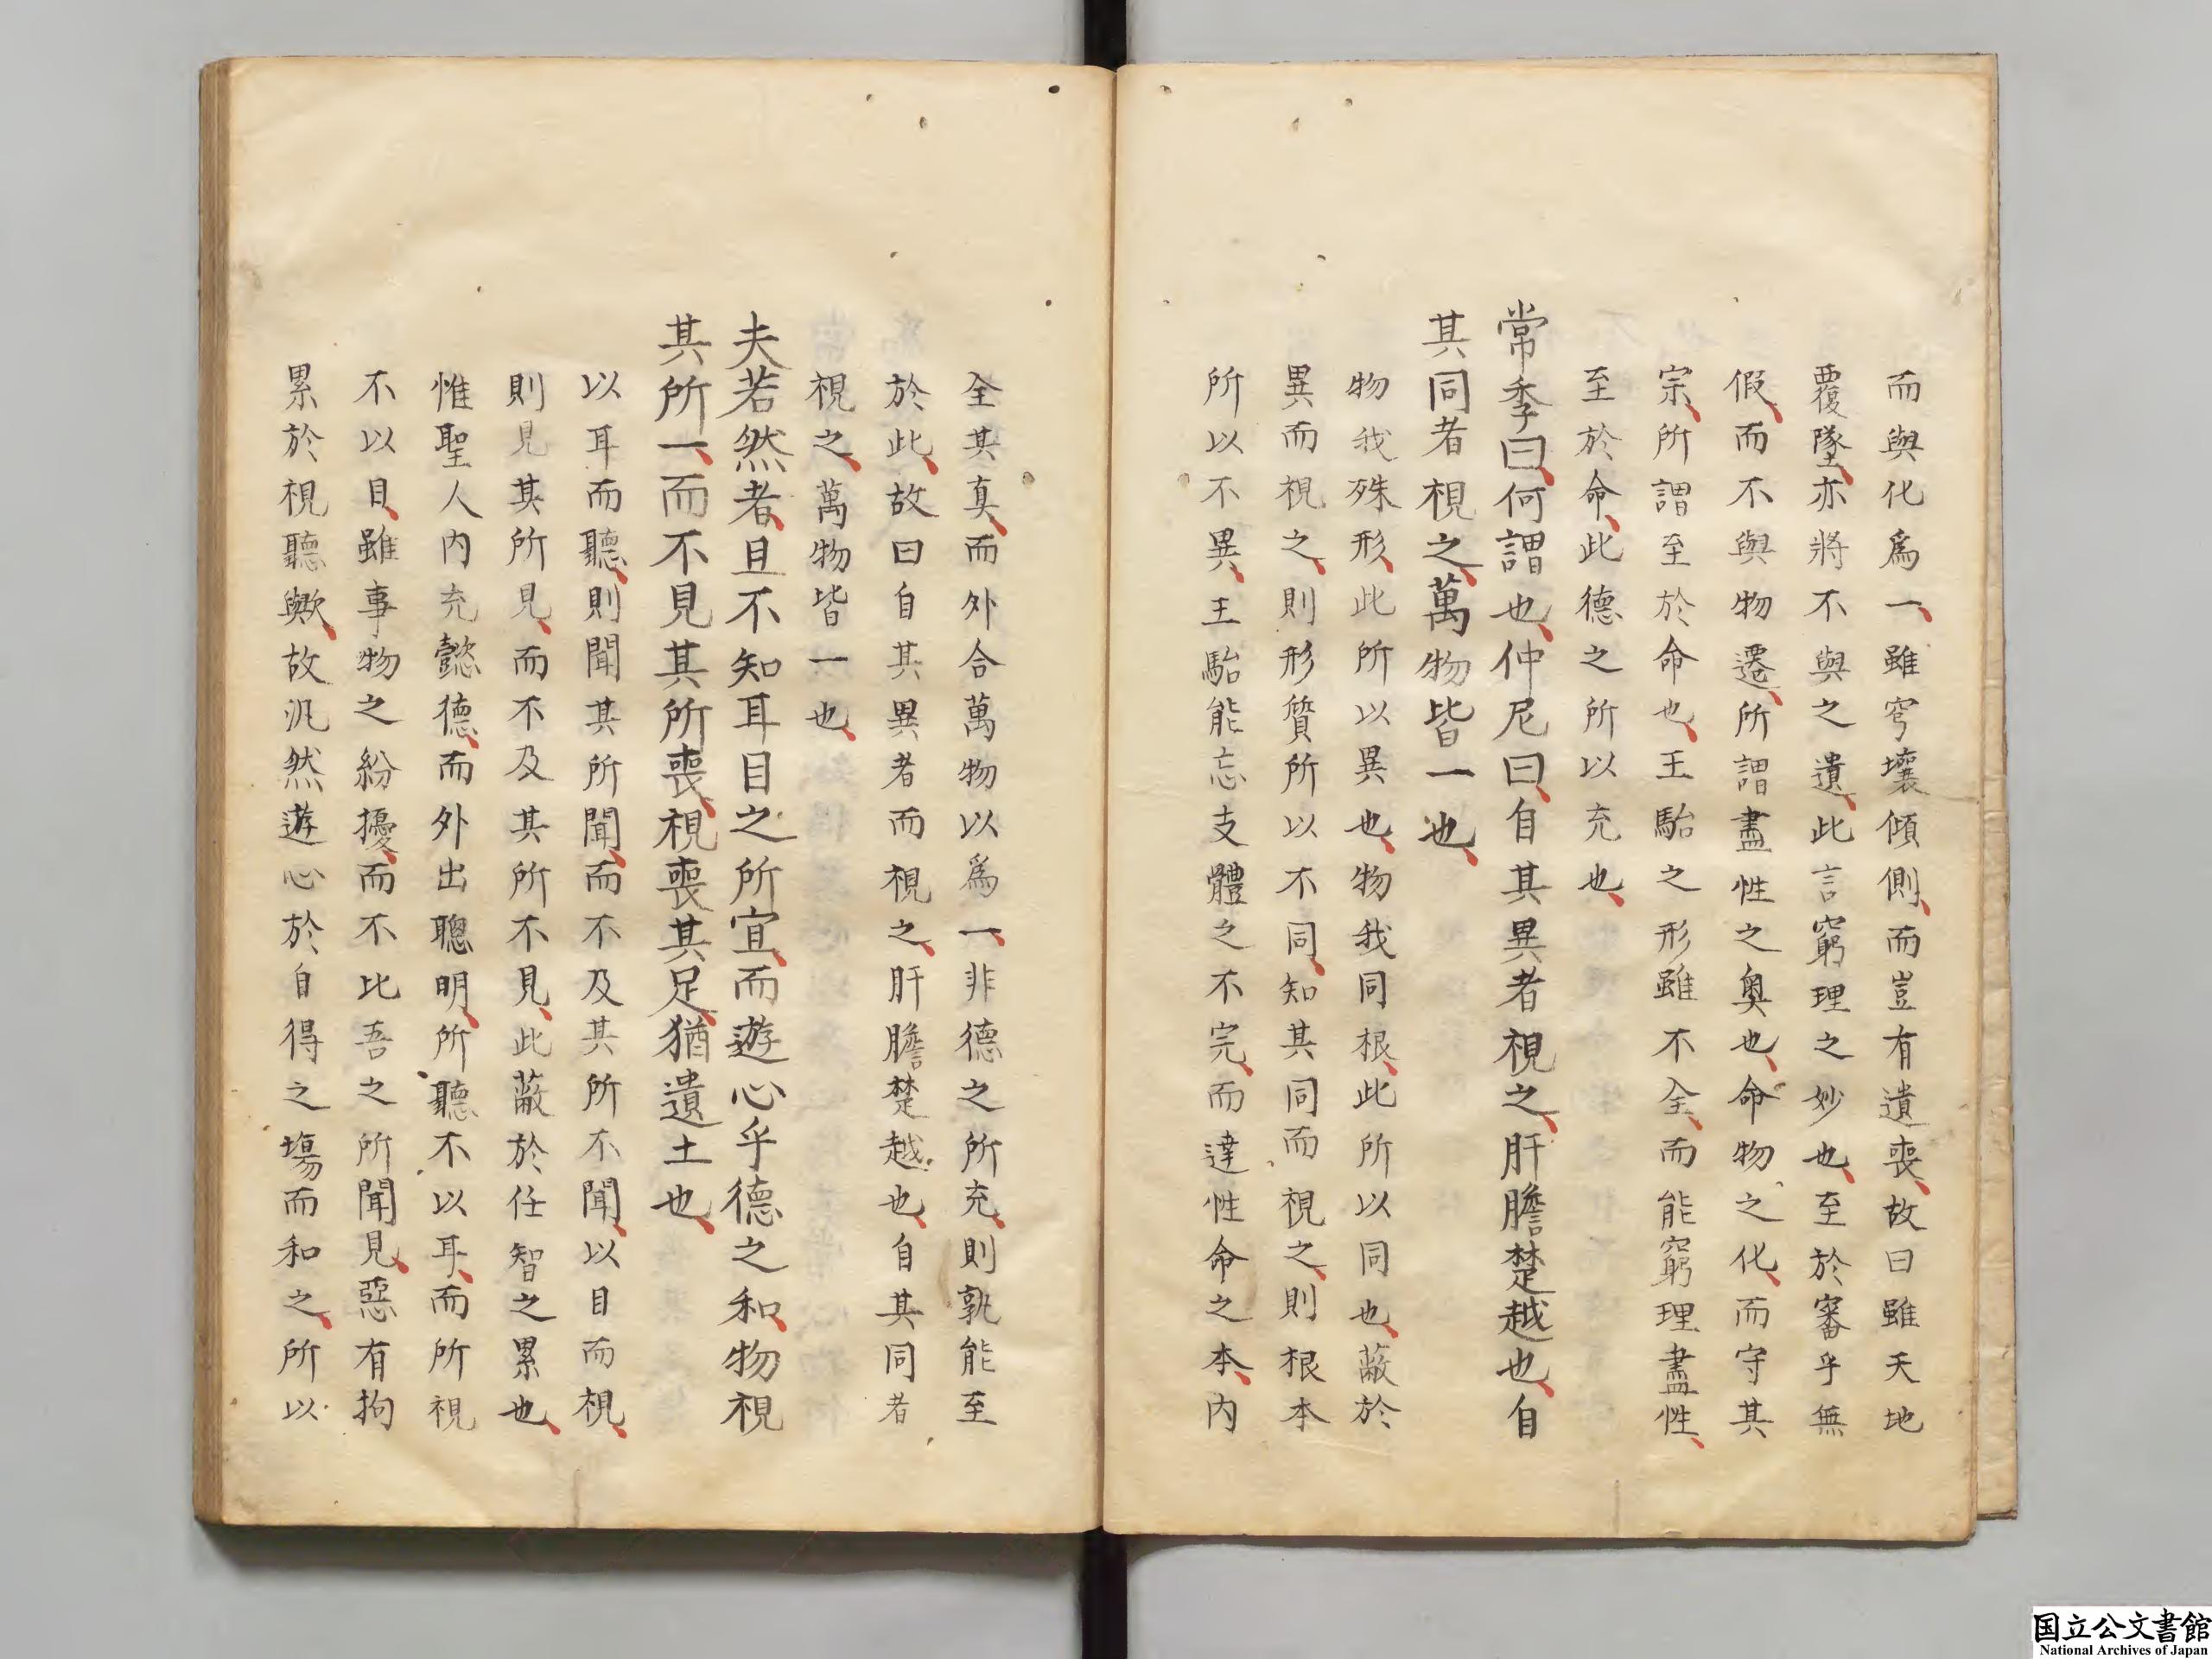 而與化爲一雖穹壤傾側而豈有遺喪故曰雖天地
覆墜亦將不與之遺此言窮理之妙也至於審乎無
假而不與物遷所謂盡性之奥也命物之化而守其
宗所謂至於命也王駘之形雖不全而能窮理盡性
至於命此德之所以充也
常季曰何謂也仲尼曰自其異者視之肝膽楚越也自
其同者視之萬物皆一也
物我殊形此所以異也物我同根此所以同也蔽於
異而視之則形質所以不同知其同而視之則根本
所以不異王駘能忘支體之不完而達性命之本内
全其真而外合萬物以爲一非德之所充則孰能至
於此故曰自其異者而視之肝膽楚越也自其同者
視之萬物皆一也
夫若然者且不知耳目之所宜而遊心乎德之和物視
其所一而不見其所喪視喪其足猶遺土也
以耳而聽則聞其所聞而不及其所不聞以目而視
則見其所見而不及其所不見此蔽於任智之累也
惟聖人内充懿德而外出聰明所聽不以耳而所視
不以目雖事物之紛擾而不比吾之所聞見惡有拘
累於視聽歟故汎然遊心於自得之場而和之所以
国立公文書館
National Archives of Japan